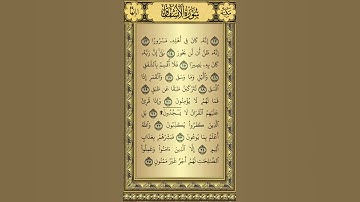 سُورَةُ الِانْشِقَاقِ
إِنَّهُ كَانَ فِي أَهْلِهِ مَسْرُورًا ﴿١٣﴾
إِنَّهُ ظَنَّ أَنْ لَنْ يَحُورَ ﴿١٤﴾ بَلَىٰ إِنَّ رَبَّهُ
كَانَ بِهِ بَصِيرًا ﴿١٥﴾ فَلَا أُقْسِمُ بِالشَّفَقِ
﴿١٦﴾ وَاللَّيْلِ وَمَا وَسَقَ ﴿١٧﴾ وَالْقَمَرِ إِذَا
اتَّسَقَ ﴿١٨﴾ لَتَرْكَبُنَّ طَبَقًا عَنْ طَبَقٍ ﴿١٩﴾
فَمَا لَهُمْ لَا يُؤْمِنُونَ ﴿٢٠﴾ وَإِذَا قُرِئَ
عَلَيْهِمُ الْقُرْآنُ لَا يَسْجُدُونَ ﴿٢١﴾ بَلِ
الَّذِينَ كَفَرُوا يُكَذِّبُونَ ﴿٢٢﴾ وَاللَّهُ
أَعْلَمُ بِمَا يُوعُونَ ﴿٢٣﴾ فَبَشِّرْهُمْ بِعَذَابٍ
أَلِيمٍ ﴿٢٤﴾ إِلَّا الَّذِينَ آمَنُوا وَعَمِلُوا
الصَّالِحَاتِ لَهُمْ أَجْرٌ غَيْرُ مَمْنُونٍ ﴿٢٥﴾